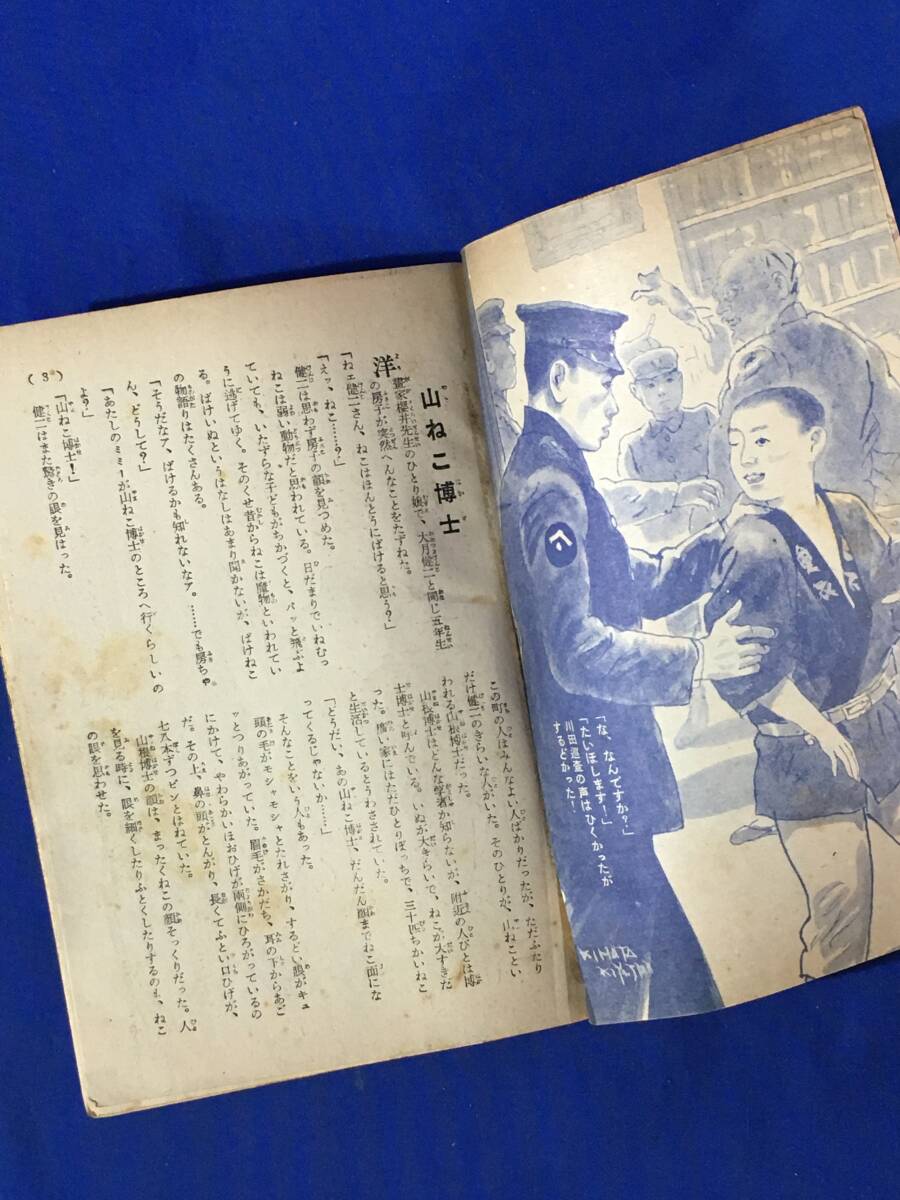 「な、なんですか？」
「たいほします！」
川田巡査の声はひくかったが
するどかった！
KIHATA
山ねこ博士
洋畫家櫻井先生のひとり娘で、大月健二と同じ五年生
の房子が突然へんなことをたずねた。
「ねェ健二さん、ねこはほんとうにばけると思う？」
「えッ、ねこ……？」
健二は思わず房子の顔を見つめた。
ねこは弱い動物だと思われている。日だまりでいねむっ
ていても、いたずらな子どもがちかづくと、パッと飛ぶよ
うに逃げてゆく。そのくせ昔からねこは魔物といわれてい
る。ばけいぬというはなしはあまり聞かないが、ばけねこ
の物語りはたくさんある。
「そうだなァ、ばけるかも知れないなァ。……でも房ちゃ
ん、どうして？」
「あたしのミミーが山ねこ博士のところへ行くらしいの
よ？」
「山ねこ博士！」
健二はまた驚きの眼を見はった。
この町の人はみんなよい人ばかりだったが、ただふたり
だけ健二のきらいな人がいた。そのひとりが、山ねことい
われる山根博士だった。
山根博士はどんな学者か知らないが、附近の人びとは博
士博士と呼んでいる。いぬが大きらいで、ねこが大すきだ
った。廣い家にはただひとりぼっちで、三十匹ちかいねこ
と生活しているとうわさされていた。
「どうだい、あの山ねこ博士、だんだん顔までねこ面にな
ってくるじゃないか……」
そんなことをいう人もあった。
頭の毛がモシャモシャとたれさがり、するどい眼がキュ
ッとつりあがっていた。眉毛がさかだち、耳の下からあご
にかけて、やわらかいほおひげが両側にひろがっているの
だ。その上、鼻の頭がとんがり、長くてふとい口ひげが、
七八本ずつピンとはねていた。
山根博士の顔は、まったくねこの顔そっくりだった。人
を見る時に、眼を細くしたりふとくしたりするのも、ねこ
の眼を思わせた。
(3)